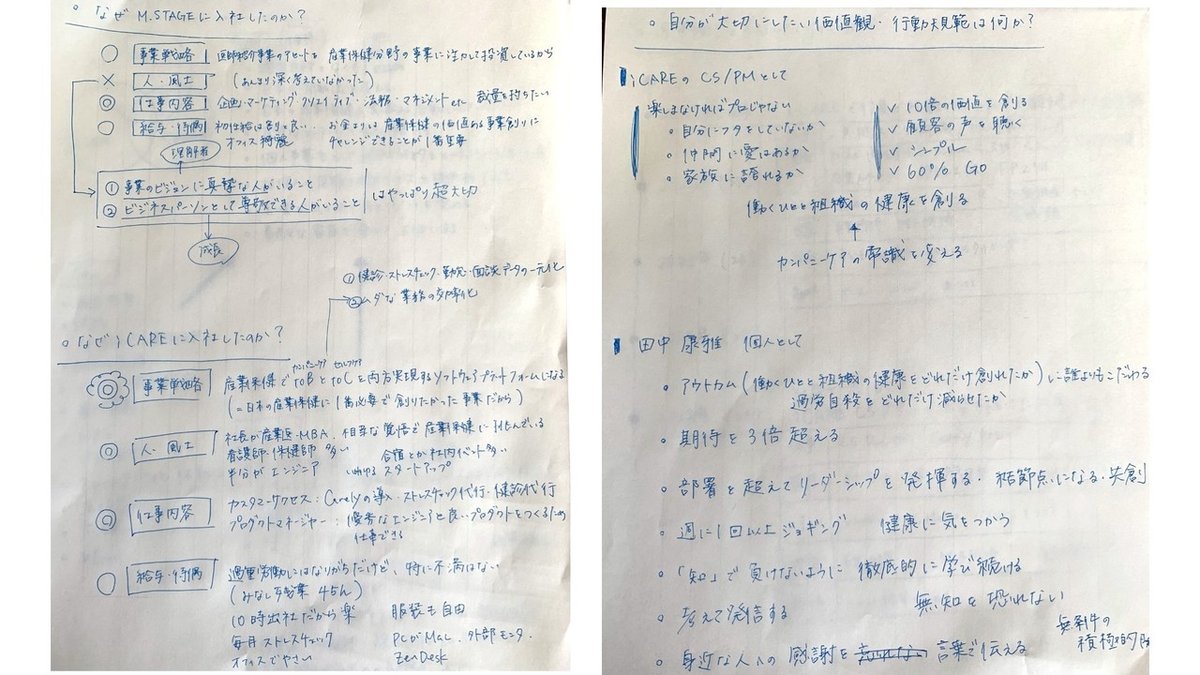 ○ なぜ M.STAGEに入社したのか？
○ 事業戦略 医師紹介事業のアセットを 産業保健分野の事業に注力して投資しているから
× 人・風土 (あんまり深く考えていなかった)
◎ 仕事内容 企画・マーケティング・クリエイティブ・法務・マネジメントetc 裁量を持ちたい
○ 給与・待遇 初任給は割と良い．． お金よりは産業保健の価値ある事業創りに
オフィス綺麗 チャレンジできることが1番重要
理解者
① 事業のビジョンに真摯な人がいること
② ビジネスパーソンとして尊敬できる人がいること
はやっぱり超大切
成長
① 健診・ストレスチェック・勤怠・面談データの一元化
② ムダな業務の効率化
○ なぜ iCAREに入社したのか？
カンパニーケア セルフケア
◎ 事業戦略 産業保健で toB と toC を両方実現するソフトウェアプラットフォームになる
(=日本の産業保健に1番必要で創りたかった事業だから)
◎ 人・風土 社長が産業医・MBA. 相当な覚悟で産業保健に挑んでいる
看護師・保健師 多い 合宿とか社内イベント多い
半分がエンジニア いわゆる スタートアップ
◎ 仕事内容 カスタマーサクセス：Carelyの導入・ストレスチェック代行・健診代行
プロダクトマネージャー：優秀なエンジニアと良いプロダクトをつくるため
仕事できる
○ 給与・待遇 過重労働にはなりがちだけど、特に不満はない
(みなし残業 45h)
10時出社だから楽 服装も自由
毎月ストレスチェック PCがMac. 外部モニタ.
オフィスでやさい ZenDesk
○ 自分が大切にしたい価値観・行動規範は何か？
iCAREの CS/PMとして
楽しまなければプロじゃない
○ 自分にフタをしていないか
○ 仲間に愛はあるか
○ 家族に誇れるか
✓ 10倍の価値を創る
✓ 顧客の声を聴く
✓ シンプル
✓ 60% GO
働くひとと組織の健康を創る
↑
カンパニーケアの常識を変える
田中 康雅 個人として
○ アウトカム (働くひとと組織の健康をどれだけ創れたか) に誰よりもこだわる
過労自殺をどれだけ減らせたか
○ 期待を3倍超える
○ 部署を超えてリーダーシップを発揮する・結節点になる・共創
○ 週に1回以上ジョギング 健康に気をつかう
○ 「知」で負けないように 徹底的に学び続ける
無知を恐れない
○ 考えて発信する
無条件の
積極的
○ 身近な人への感謝を 忘れない 言葉で伝える